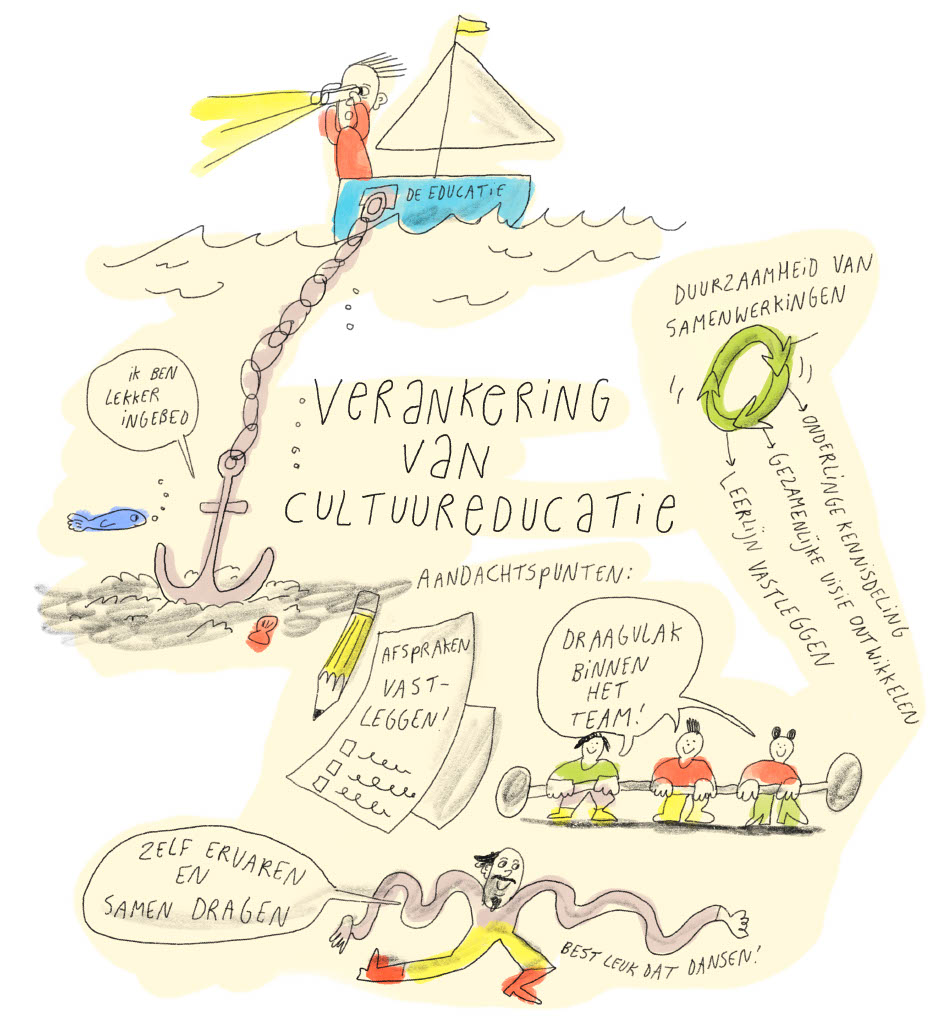 DE EDUCATIE
DUURZAAMHEID VAN
SAMENWERKINGEN
ONDERLINGE KENNISDELING
GEZAMENLIJKE VISIE ONTWIKKELEN
LEERLIJN VASTLEGGEN
ik BEN
LEKKER
INGEBED
VERANKERING
VAN
CULTUUREDUCATIE
AANDACHTSPUNTEN:
AFSPRAKEN
VAST-
LEGGEN!
DRAAGVLAK
BINNEN
HET
TEAM!
ZELF ERVAREN
EN
SAMEN DRAGEN
BEST LEUK DAT DANSEN!